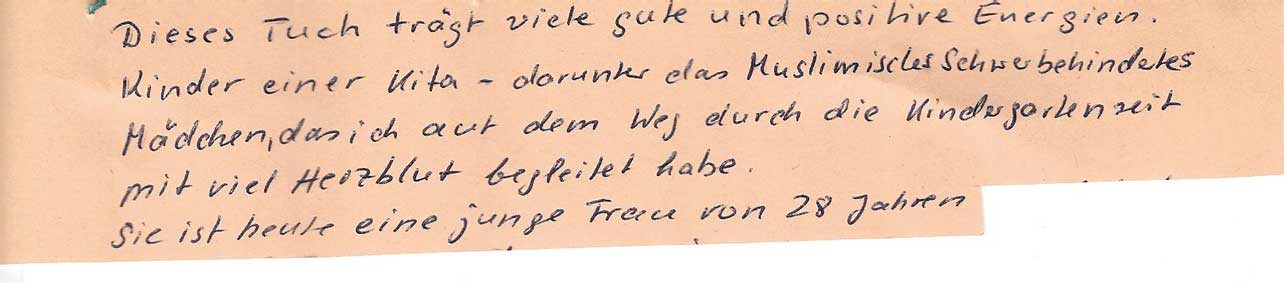 Dieses Tuch trägt viele gute und positive Energien.
Kinder einer Kita - darunter das Muslimisches Schwerbehindetes
Mädchen, das ich auf dem Weg durch die Kindergartenzeit
mit viel Herzblut begleitet habe.
Sie ist heute eine junge Frau von 28 Jahren